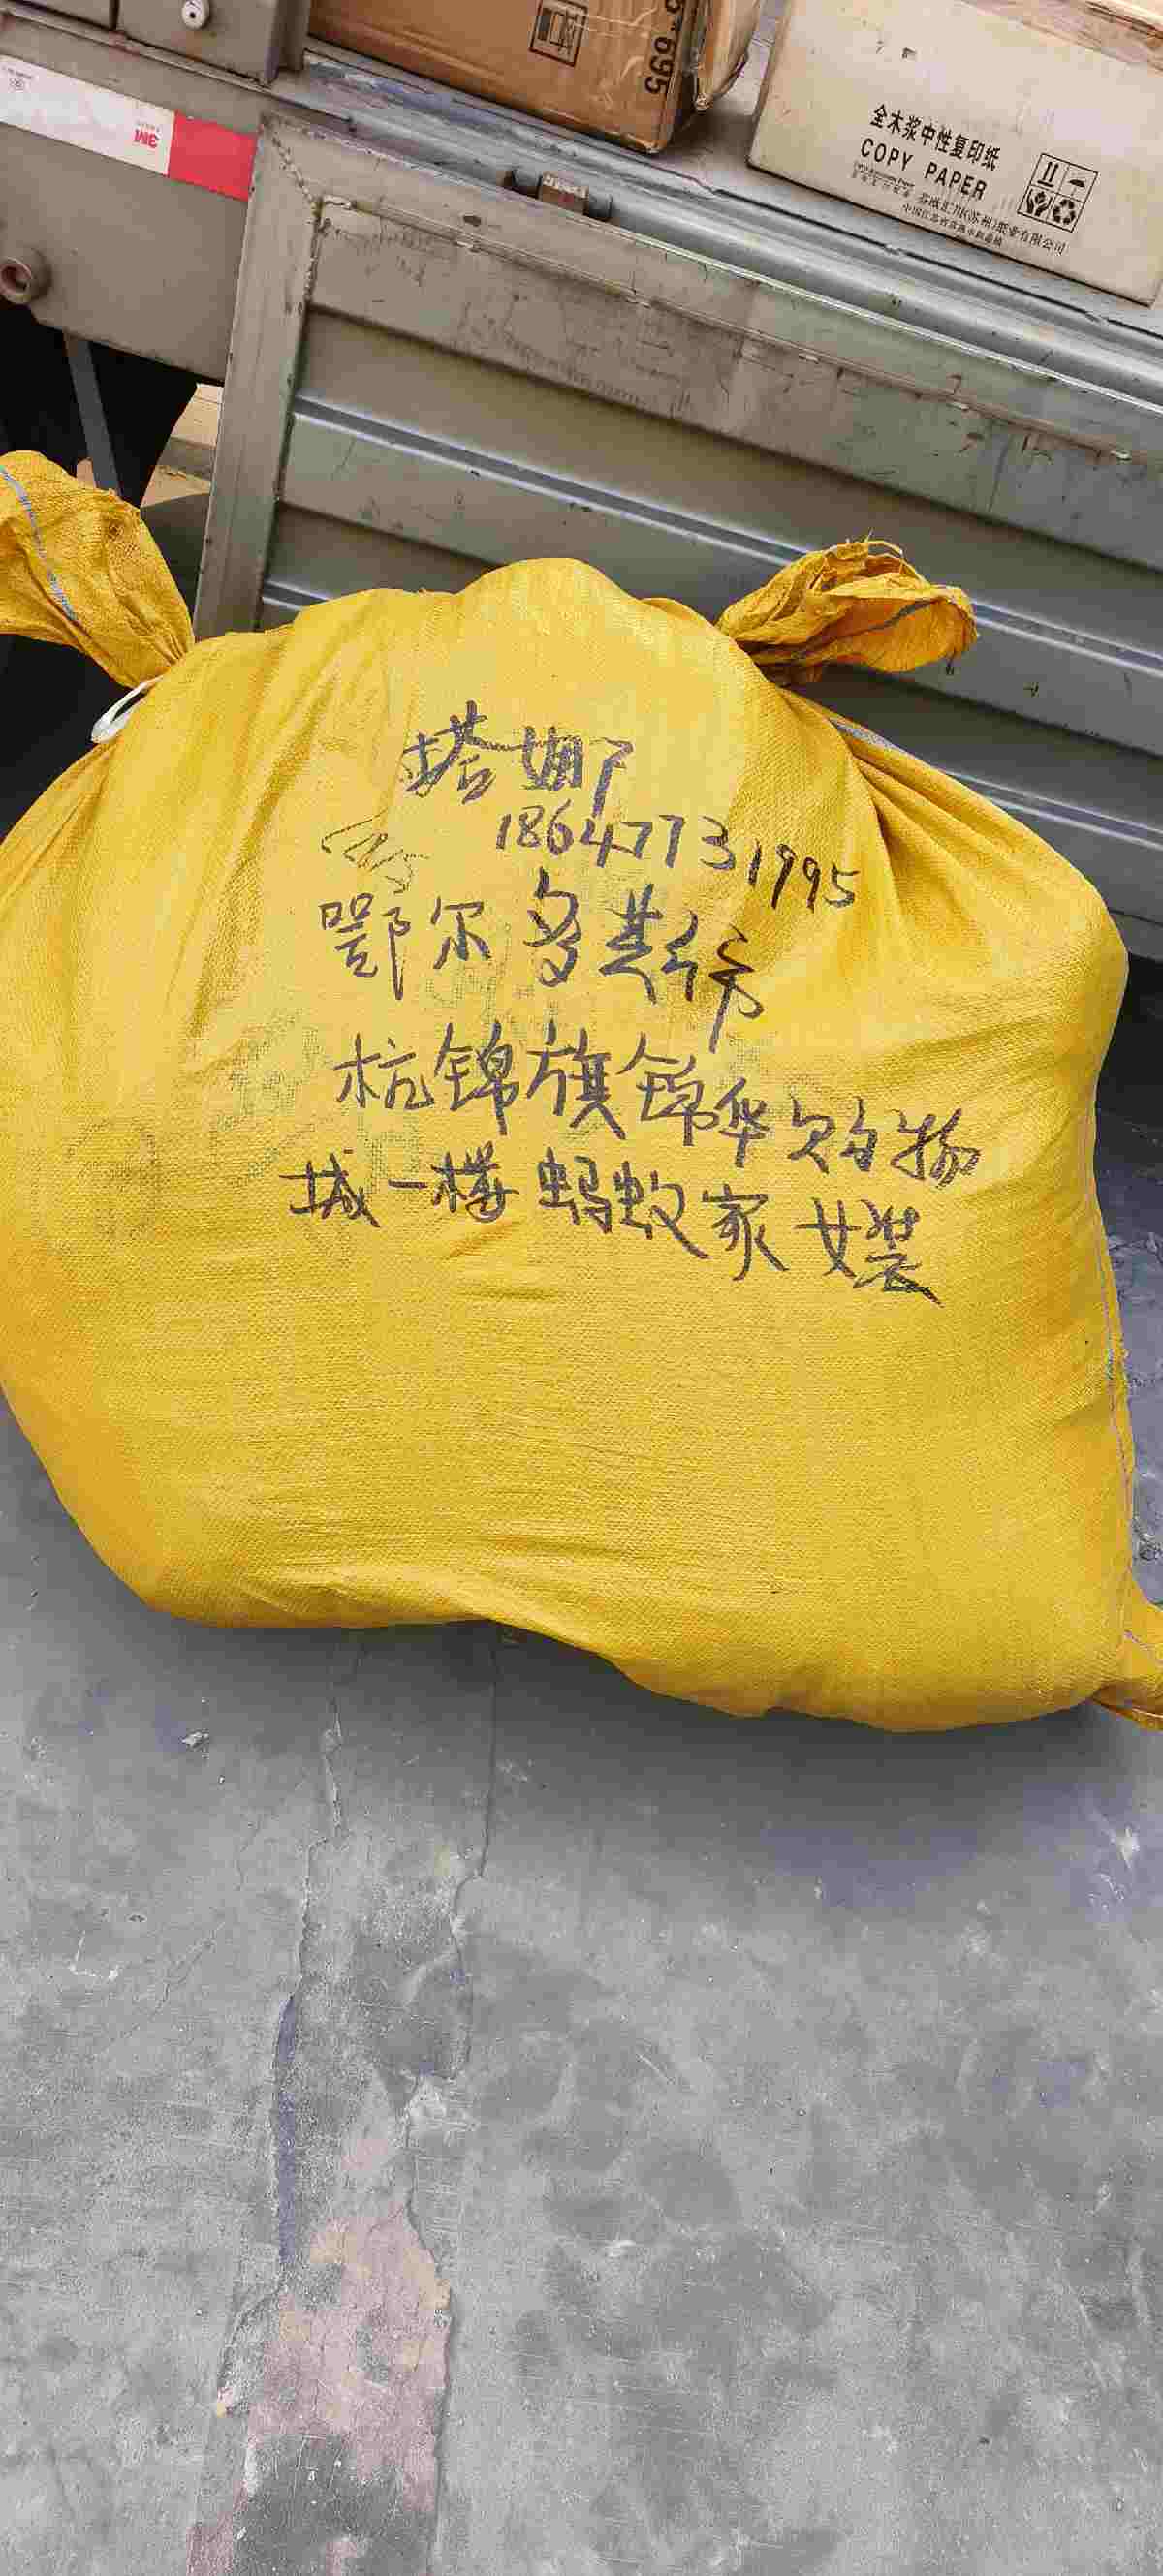 3M
695
全木浆中性复印纸
COPY PAPER
塔娜
18647731995
鄂尔多斯市
杭锦旗锦华购物
城一楼蚂蚁家女装